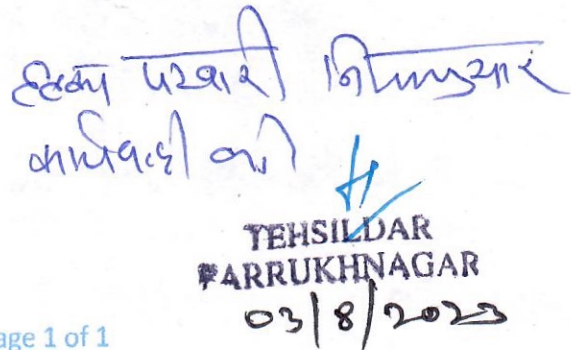 हल्का पटवारी नियमानुसार
कार्यवाही करें
TEHSILDAR
FARRUKHNAGAR
03/8/2023
age 1 of 1